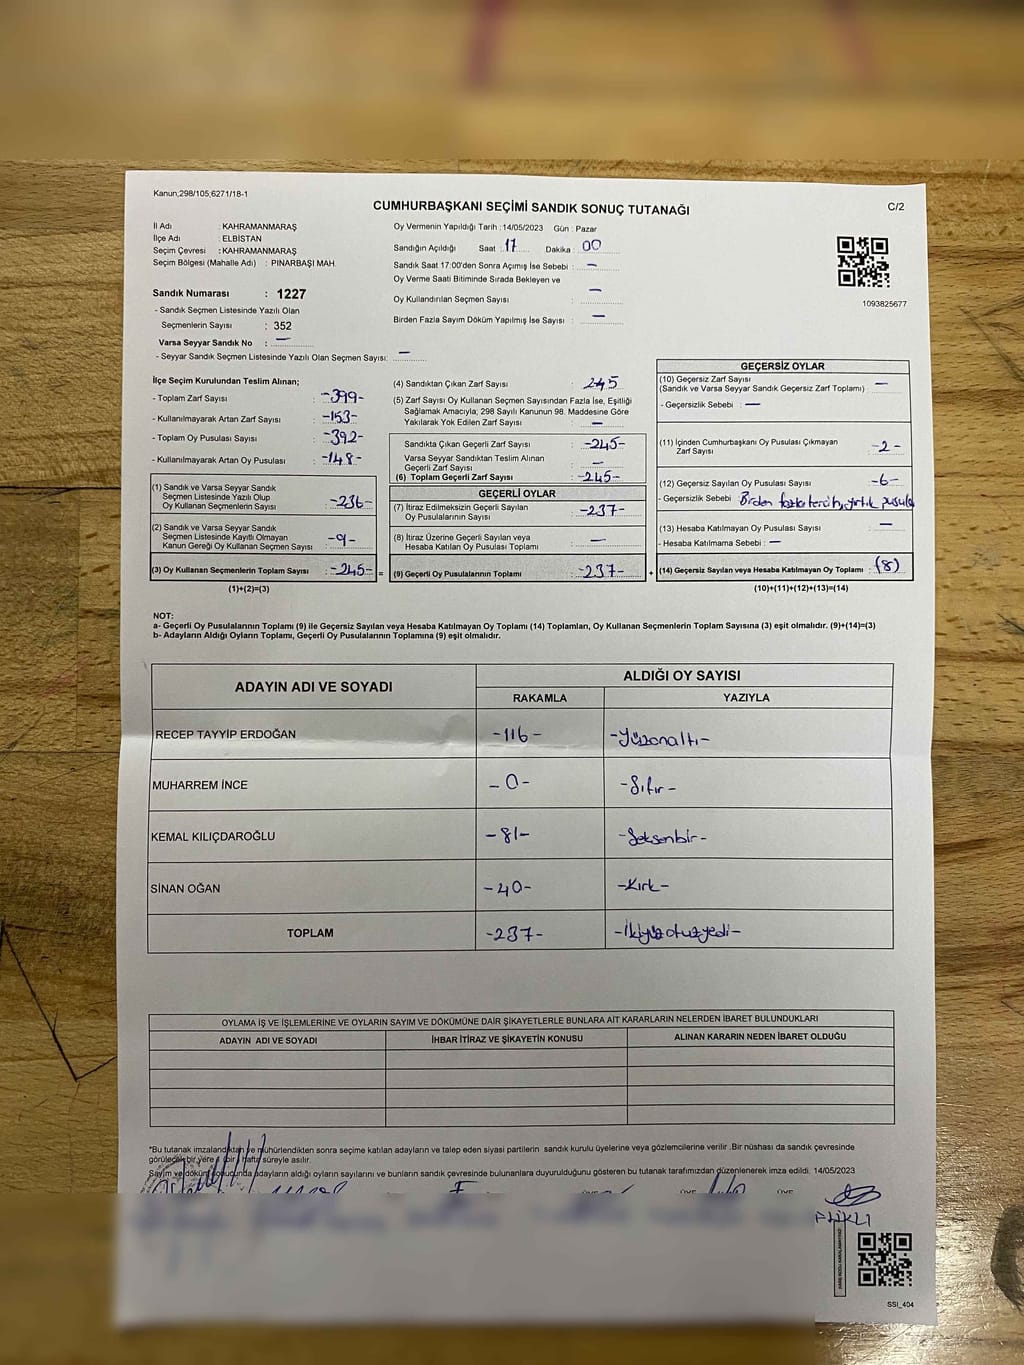 Kanun,298/105,6271/18-1
CUMHURBAŞKANI SEÇİMİ SANDIK SONUÇ TUTANAĞI
C/2
İl Adı : KAHRAMANMARAŞ
İlçe Adı : ELBİSTAN
Seçim Çevresi : KAHRAMANMARAŞ
Seçim Bölgesi (Mahalle Adı) : PINARBAŞI MAH.
Sandık Numarası : 1227
- Sandık Seçmen Listesinde Yazılı Olan
Seçmenlerin Sayısı : 352
Varsa Seyyar Sandık No : —
- Seyyar Sandık Seçmen Listesinde Yazılı Olan Seçmen Sayısı: —
Oy Vermenin Yapıldığı Tarih : 14/05/2023 Gün : Pazar
Sandığın Açıldığı Saat : 17 Dakika : 00
Sandık Saat 17:00'den Sonra Açımış İse Sebebi : —
Oy Verme Saati Bitiminde Sırada Bekleyen ve
Oy Kullandırılan Seçmen Sayısı : —
Birden Fazla Sayım Döküm Yapılmış İse Sayısı : —
1093825677
İlçe Seçim Kurulundan Teslim Alınan;
- Toplam Zarf Sayısı : -399-
- Kullanılmayarak Artan Zarf Sayısı : -153-
- Toplam Oy Pusulası Sayısı : -392-
- Kullanılmayarak Artan Oy Pusulası : -148-
(1) Sandık ve Varsa Seyyar Sandık
Seçmen Listesinde Yazılı Olup
Oy Kullanan Seçmenlerin Sayısı : -236-
(2) Sandık ve Varsa Seyyar Sandık
Seçmen Listesinde Kayıtlı Olmayan
Kanun Gereği Oy Kullanan Seçmen Sayısı : -9-
(3) Oy Kullanan Seçmenlerin Toplam Sayısı : -245- =
(1)+(2)=(3)
(4) Sandıktan Çıkan Zarf Sayısı : 245
(5) Zarf Sayısı Oy Kullanan Seçmen Sayısından Fazla İse, Eşitliği
Sağlamak Amacıyla; 298 Sayılı Kanunun 98. Maddesine Göre
Yakılarak Yok Edilen Zarf Sayısı : —
Sandıkta Çıkan Geçerli Zarf Sayısı : -245-
Varsa Seyyar Sandıktan Teslim Alınan
Geçerli Zarf Sayısı : —
(6) Toplam Geçerli Zarf Sayısı : -245-
GEÇERLİ OYLAR
(7) İtiraz Edilmeksizin Geçerli Sayılan
Oy Pusulalarının Sayısı : -237-
(8) İtiraz Üzerine Geçerli Sayılan veya
Hesaba Katılan Oy Pusulası Toplamı : —
(9) Geçerli Oy Pusulalarının Toplamı : -237- +
GEÇERSİZ OYLAR
(10) Geçersiz Zarf Sayısı : —
(Sandık ve Varsa Seyyar Sandık Geçersiz Zarf Toplamı)
- Geçersizlik Sebebi : —
(11) İçinden Cumhurbaşkanı Oy Pusulası Çıkmayan
Zarf Sayısı : -2-
(12) Geçersiz Sayılan Oy Pusulası Sayısı : -6-
- Geçersizlik Sebebi : Birden fazla tercih, yırtık pusula
(13) Hesaba Katılmayan Oy Pusulası Sayısı : —
- Hesaba Katılmama Sebebi : —
(14) Geçersiz Sayılan veya Hesaba Katılmayan Oy Toplamı : (8)
(10)+(11)+(12)+(13)=(14)
NOT:
a- Geçerli Oy Pusulalarının Toplamı (9) ile Geçersiz Sayılan veya Hesaba Katılmayan Oy Toplamı (14) Toplamları, Oy Kullanan Seçmenlerin Toplam Sayısına (3) eşit olmalıdır. (9)+(14)=(3)
b- Adayların Aldığı Oyların Toplamı, Geçerli Oy Pusulalarının Toplamına (9) eşit olmalıdır.
ADAYIN ADI VE SOYADI ALDIĞI OY SAYISI
RAKAMLA YAZIYLA
RECEP TAYYİP ERDOĞAN -116- -Yüzonaltı-
MUHARREM İNCE -0- -Sıfır-
KEMAL KILIÇDAROĞLU -81- -Seksenbir-
SİNAN OĞAN -40- -Kırk-
TOPLAM -237- -İkiyüzotuzyedi-
OYLAMA İŞ VE İŞLEMLERİNE VE OYLARIN SAYIM VE DÖKÜMÜNE DAİR ŞİKAYETLERLE BUNLARA AİT KARARLARIN NELERDEN İBARET BULUNDUKLARI
ADAYIN ADI VE SOYADI İHBAR İTİRAZ VE ŞİKAYETİN KONUSU ALINAN KARARIN NEDEN İBARET OLDUĞU
*Bu tutanak imzalandıktan ve mühürlendikten sonra seçime katılan adayların ve talep eden siyasi partilerin sandık kurulu üyelerine veya gözlemcilerine verilir .Bir nüshası da sandık çevresinde
görülecek bir yere 1 (bir) hafta süreyle asılır.
Sayım ve döküm sonucunda adayların aldığı oyların sayılarını ve bunların sandık çevresinde bulunanlara duyurulduğunu gösteren bu tutanak tarafımızdan düzenlenerek imza edildi. 14/05/2023
ÜYE ÜYE
SSI_404